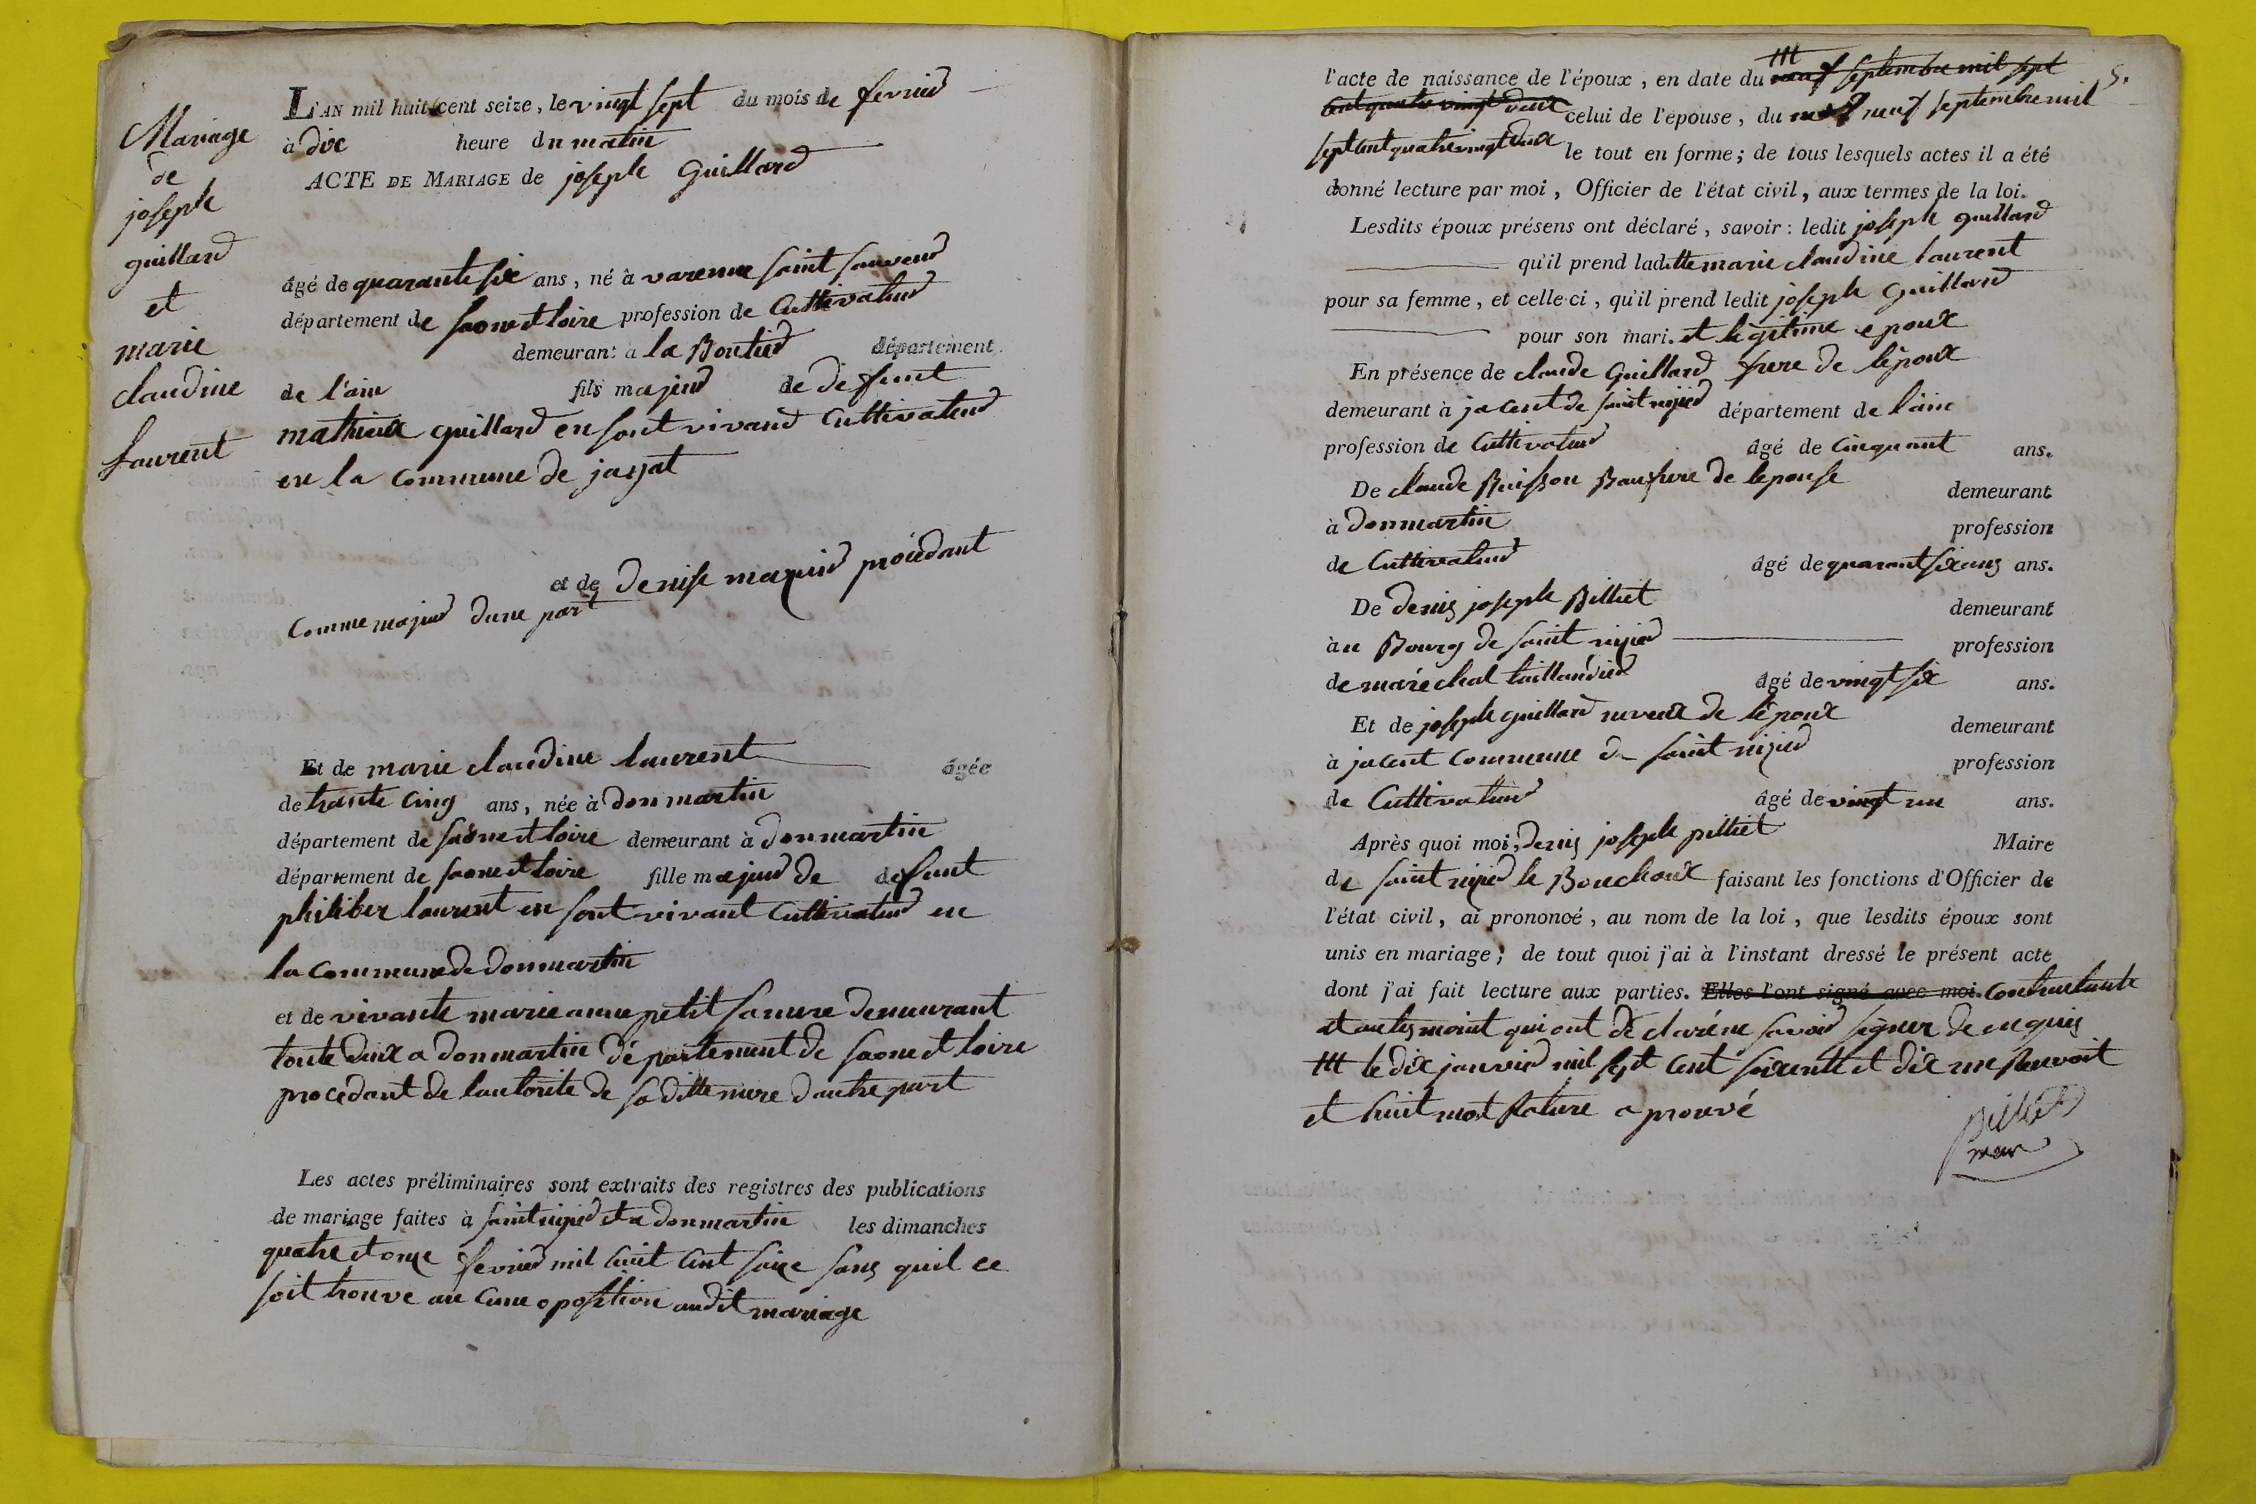 Mariage
de
joseph
guillard
et
marie
claudine
laurent
L'AN mil huit cent seize, le vingt sept du mois de fevrier
à dix heure du matin
ACTE DE MARIAGE de joseph Guillard
âgé de quarante six ans, né à varenne saint sauveur
département de saone et loire profession de Cultivateur
demeurant à la Boutier département
de l'ain fils majeur de defunt
mathieux guillard en sont vivand Cultivateur
en la Commune de jayat
et de denise mazuir procédant
Comme majeur dune part
Et de marie claudine laurent âgée
de trante cinq ans, née à donmartin
département de saone et loire demeurant à donmartin
département de saone et loire fille majeur de defunt
philiber laurent en sont vivant Cultivateur en
la Commune de donmartin
et de vivante marie anne petit sa mere demeurant
toute deux a donmartin département de saone et loire
procedant de lautorité de sa ditte mere dautre part
Les actes préliminaires sont extraits des registres des publications
de mariage faites à saint nizier et a donmartin les dimanches
quatre et onze fevrier mil huit cent seize sans quil ce
soit trouve au cune oposition audit mariage
5.
l'acte de naissance de l'époux, en date du ttt neuf septembre mil sept
cent quatre vingt deux celui de l'épouse, du neuf septembre mil
sept cent quatre vingt deux le tout en forme; de tous lesquels actes il a été
donné lecture par moi, Officier de l'état civil, aux termes de la loi.
Lesdits époux présens ont déclaré, savoir : ledit joseph guillard
qu'il prend laditte marie claudine laurent
pour sa femme, et celle-ci, qu'il prend ledit joseph Guillard
pour son mari. et légitime epoux
En présence de claude Guillard frere de lépoux
demeurant à jacent de saint nizier département de l'ain
profession de Cultivateur âgé de cinquant ans.
De claude Buisson Baufrere de lepouse demeurant
à donmartin profession
de Cultivateur âgé de quarant six ans ans.
De denis joseph Billiet demeurant
à u Bourg de saint nizier profession
de maréchal taillandier âgé de vingt six ans.
Et de joseph guillard neveux de lépoux demeurant
à jacent commune de saint nizier profession
de Cultivateur âgé de vingt un ans.
Après quoi moi, denis joseph pilliet Maire
de saint nizier le Bouchoux faisant les fonctions d'Officier de
l'état civil, ai prononcé, au nom de la loi, que lesdits époux sont
unis en mariage; de tout quoi j'ai à l'instant dressé le présent acte
dont j'ai fait lecture aux parties. Elles l'ont signé avec moi. Contractante
et au tesmoint qui ont dé claré ne savoir signer de en quis
ttt le dix janvier mil sept cent soixante et dix me renvoit
et huit mot rature a prouvé
Billiet
mair